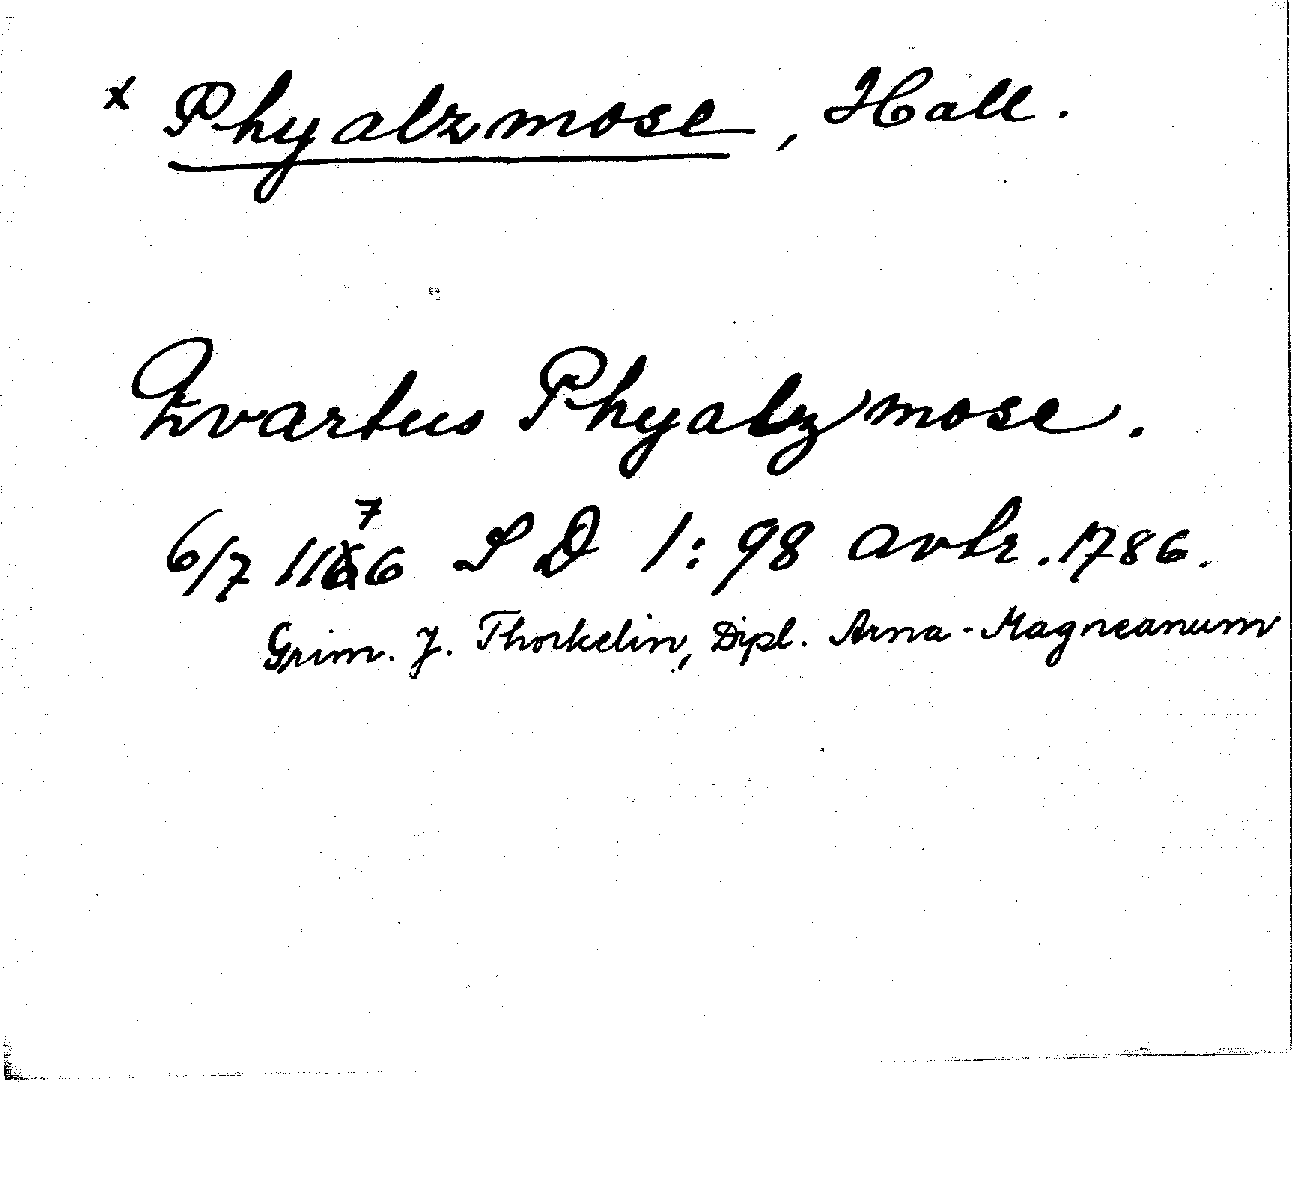 x Phyalzmose, Hall.
Qvartus Phyalzmose.
6/7 1176 SD 1:98 avtr. 1786.
Grim. J. Thorkelin, Dipl. Arna-Magneanum